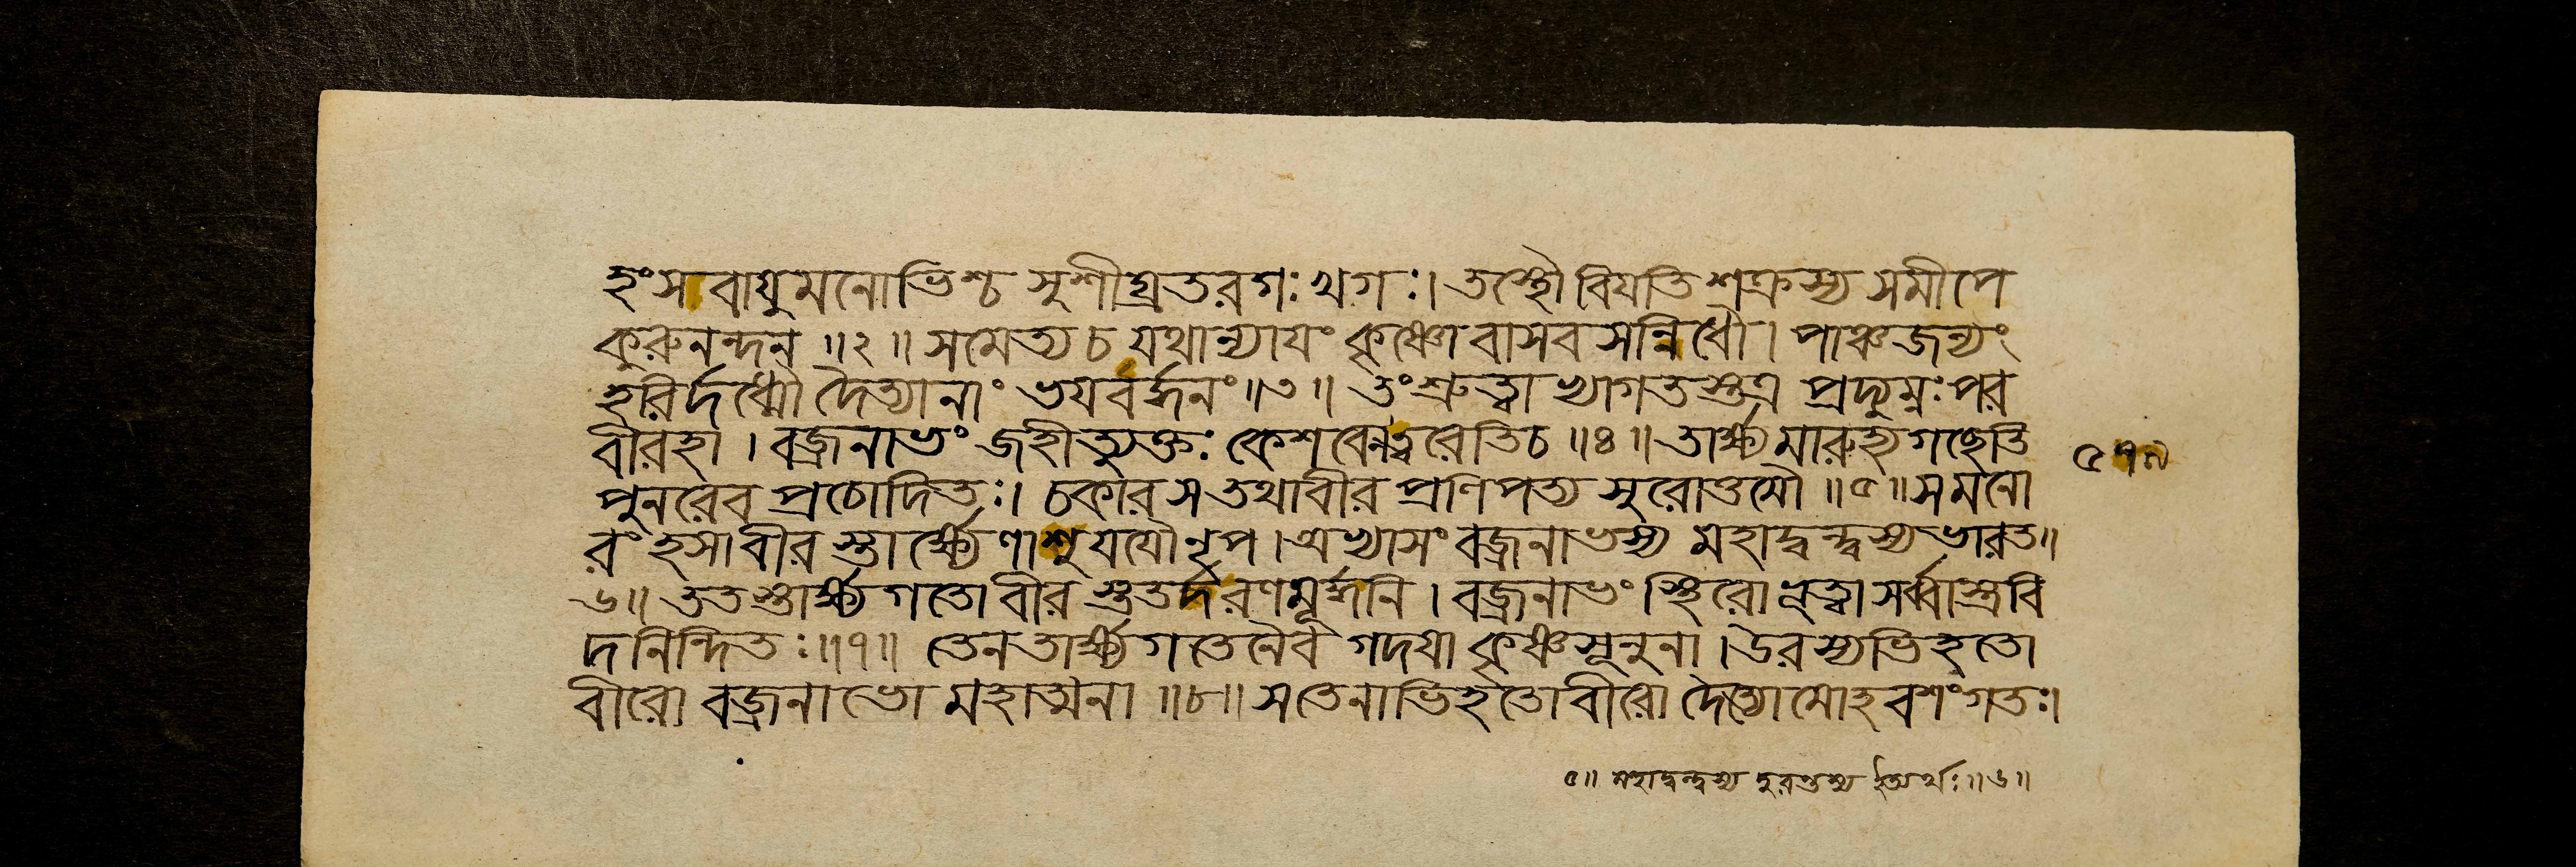 হংস বায়ুমনোভিশ্চ সুশীঘ্রতরগঃ খগঃ। তস্থৌ বিয়তি শক্রস্য সমীপে
কুরুনন্দন ॥২॥ সমেত্য চ যথান্যায়ং কৃষ্ণো বাসব সন্নিধৌ। পাঞ্চজন্যং
হরির্দধ্মৌ দৈত্যানাং ভয়বর্দ্ধনং॥৩॥ তং শ্রুত্বা খাগতস্তত্র প্রদ্যুম্নঃ পর
বীরহা। বজ্রনাভং জহীত্যুক্তঃ কেশবেনত্বরেতি চ ॥৪॥ তার্ক্ষ্যমারুহ্য গছেতি
পুনরেব প্রচোদিতঃ। চকার স তথা বীর প্রণিপত্য সুরোত্তমৌ ॥৫॥ স মনো
রংহসা বীর স্তার্ক্ষ্যেণাশু যযৌ নৃপ। বজ্রনাভস্য মহাদ্বন্দ্বস্য ভারত॥
৬॥ ততস্তার্ক্ষ্যগতো বীর স্ততর্দ রণমূর্দ্ধনি। বজ্রনাভং স্থিরো ভূত্বা সর্ব্বাস্ত্রবি
দনিন্দিতঃ॥৭॥ তেন তার্ক্ষ্যগতেনৈব গদয়া কৃষ্ণসূনুনা। উরস্যভিহতো
বীরো বজ্রনাভো মহাত্মনা ॥৮॥ স তেনাভিহতো বীরো দৈত্যো মোহবশং গতঃ।
৫॥ মহাদ্বন্দ্বস্য ॥৬॥